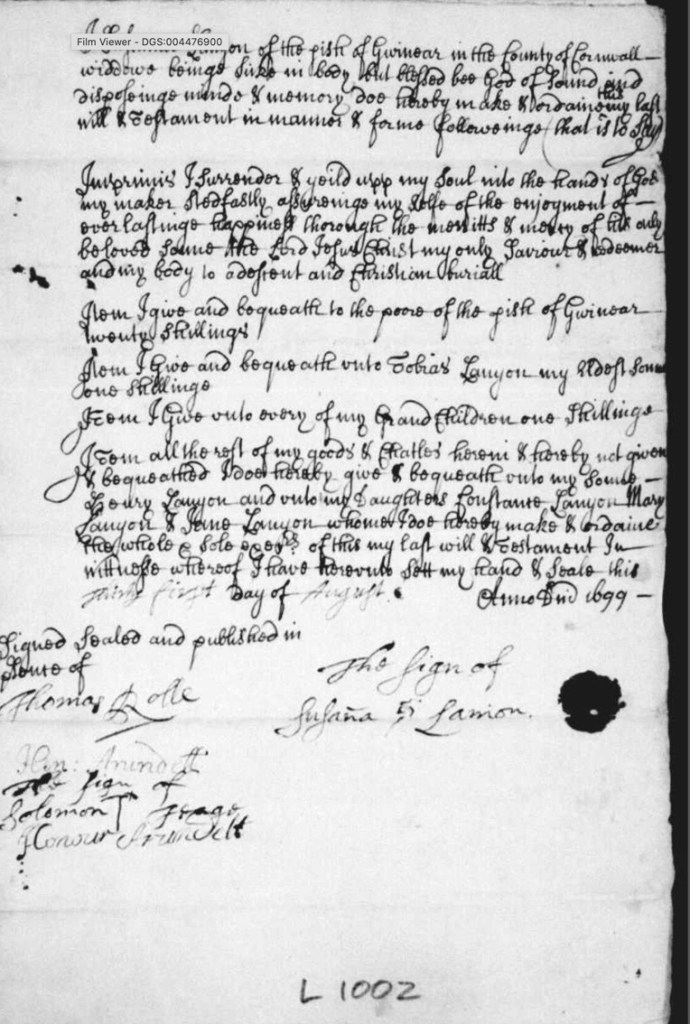 Film Viewer - DGS:004476900
Lanyon of the pish of Gwinear in the County of Cornwall
widdowe beinge sicke in body but blessed bee God of sound and
disposeinge minde & memory doe hereby make & ordaine this my last
will & Testament in manner & forme followeinge (that is to Say)
Imprimis I surrender & yeild upp my Soul into the hands of God
my maker stedfastly assureinge my selfe of the enjoyment of
everlastinge happiness thorough the merritts & mercy of his only
beloved Sonne the Lord Jesus Christ my only Saviour & redeemer
and my body to a descent and Christian buriall
Item I give and bequeath to the poore of the pish of Gwinear
twenty shillings
Item I Give and bequeath unto Tobias Lanyon my Eldest Sonne
one shillinge
Item I Give unto every of my Grand Children one Shillinge
Item all the rest of my goods & Chatles herein & hereby not given
& bequeathed I doe hereby give & bequeath unto my Sonne
Henry Lanyon and unto my Daughters Constance Lanyon Mary
Lanyon & Jane Lanyon whome I doe hereby make & ordaine
the whole & sole exers of this my last will & Testament In
wittnesse whereof I have hereunto sett my hand & Seale this
thirty first Day of August Anno Dni 1699
Signed Sealed and published in
psence of
The Sign of
Thomas Rolle
Susana Lanion.
Hen: Arundell
The Sign of
Solomon
Honour Arundell
L 1002